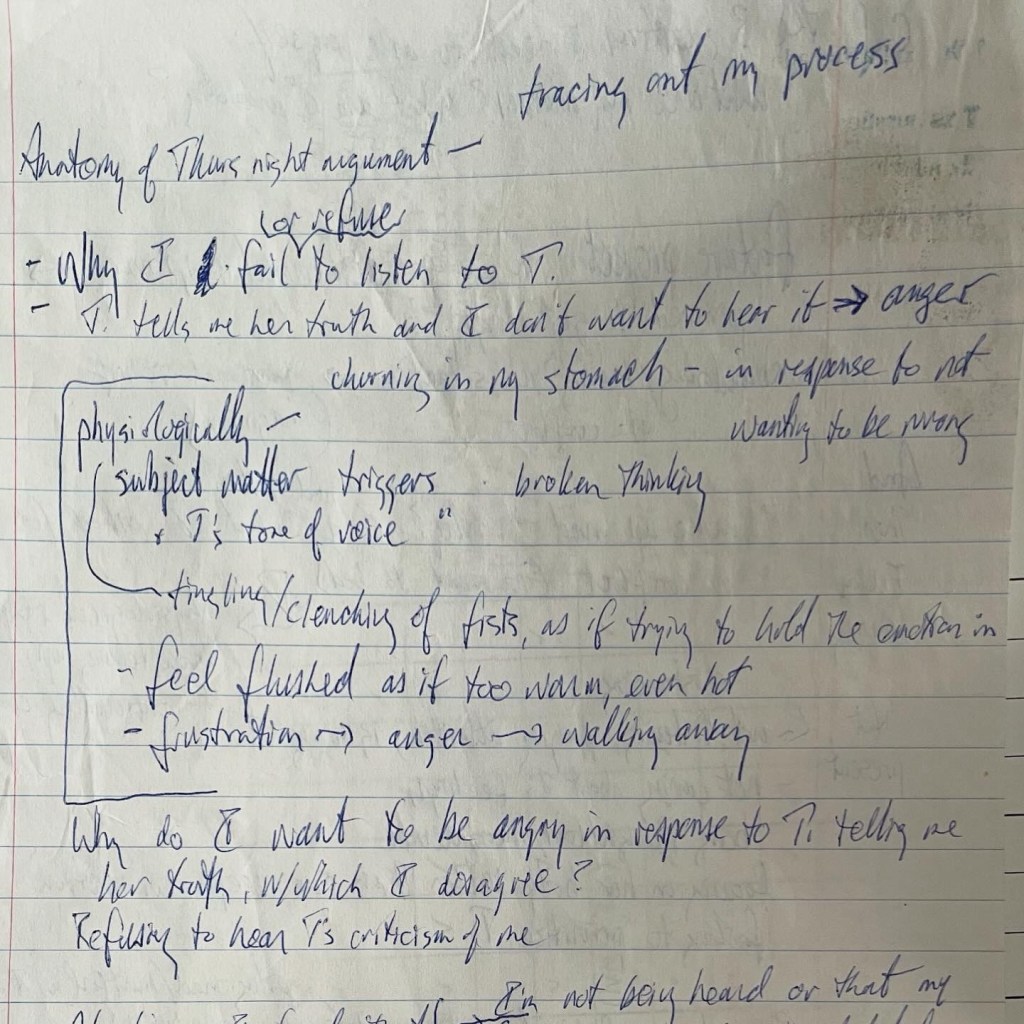 tracing out my process
Anatomy of Thurs night argument —
or refuse
- Why I fail to listen to T.
- T. tells me her truth and I don't want to hear it → anger
churning in my stomach - in response to not
wanting to be wrong
physiologically —
subject matter triggers broken thinking
+ T's tone of voice "
tingling/clenching of fists, as if trying to hold the emotion in
- feel flushed as if too warm, even hot
- frustration → anger → walking away
Why do I want to be angry in response to T. telling me
her truth, w/which I disagree?
Refusing to hear T's criticism of me
I'm not being heard or that my